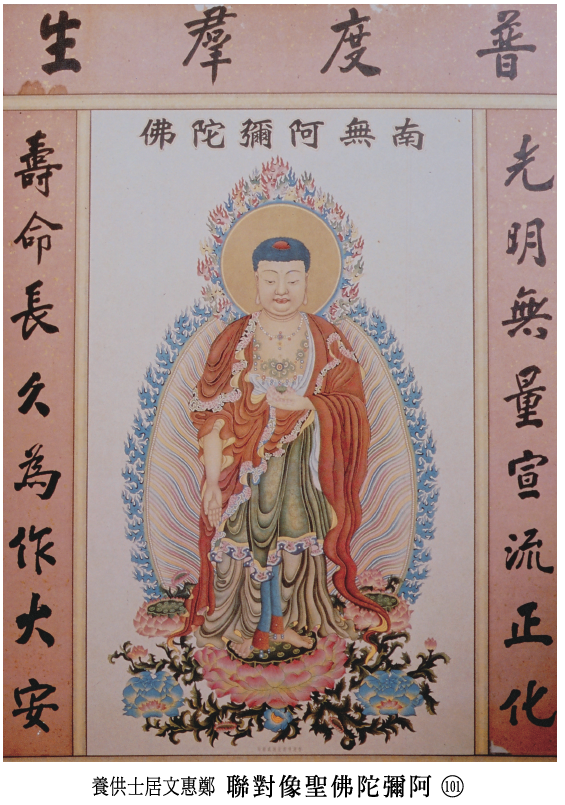 普度羣生
南無阿彌陀佛
光明無量宣流正化
壽命長久為作大安
101 阿彌陀佛聖像對聯 鄭惠文居士供養